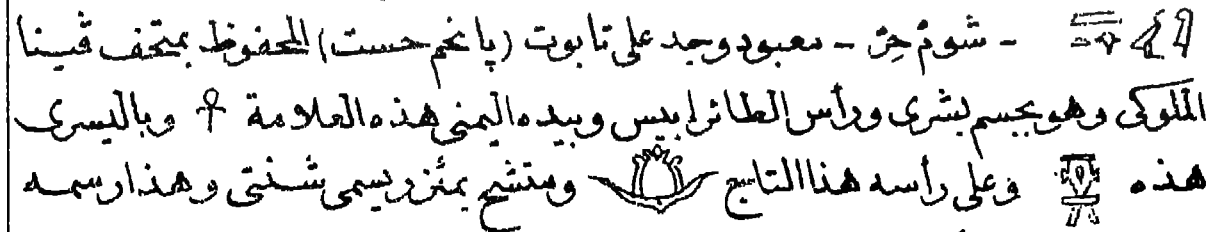 - شومْ حِرّ - معبود وجد على تابوت (پا نخم حست) المحفوظ بمتحف ڤينا
الملوكى وهو بجسم بشرى ورأس الطائر ابيس وبيده اليمنى هذه العلامة ☥ وباليسرى
هذه وعلى رأسه هذا التاج ومتشح بمئزر ويسمى شنتى وهذا رسمه